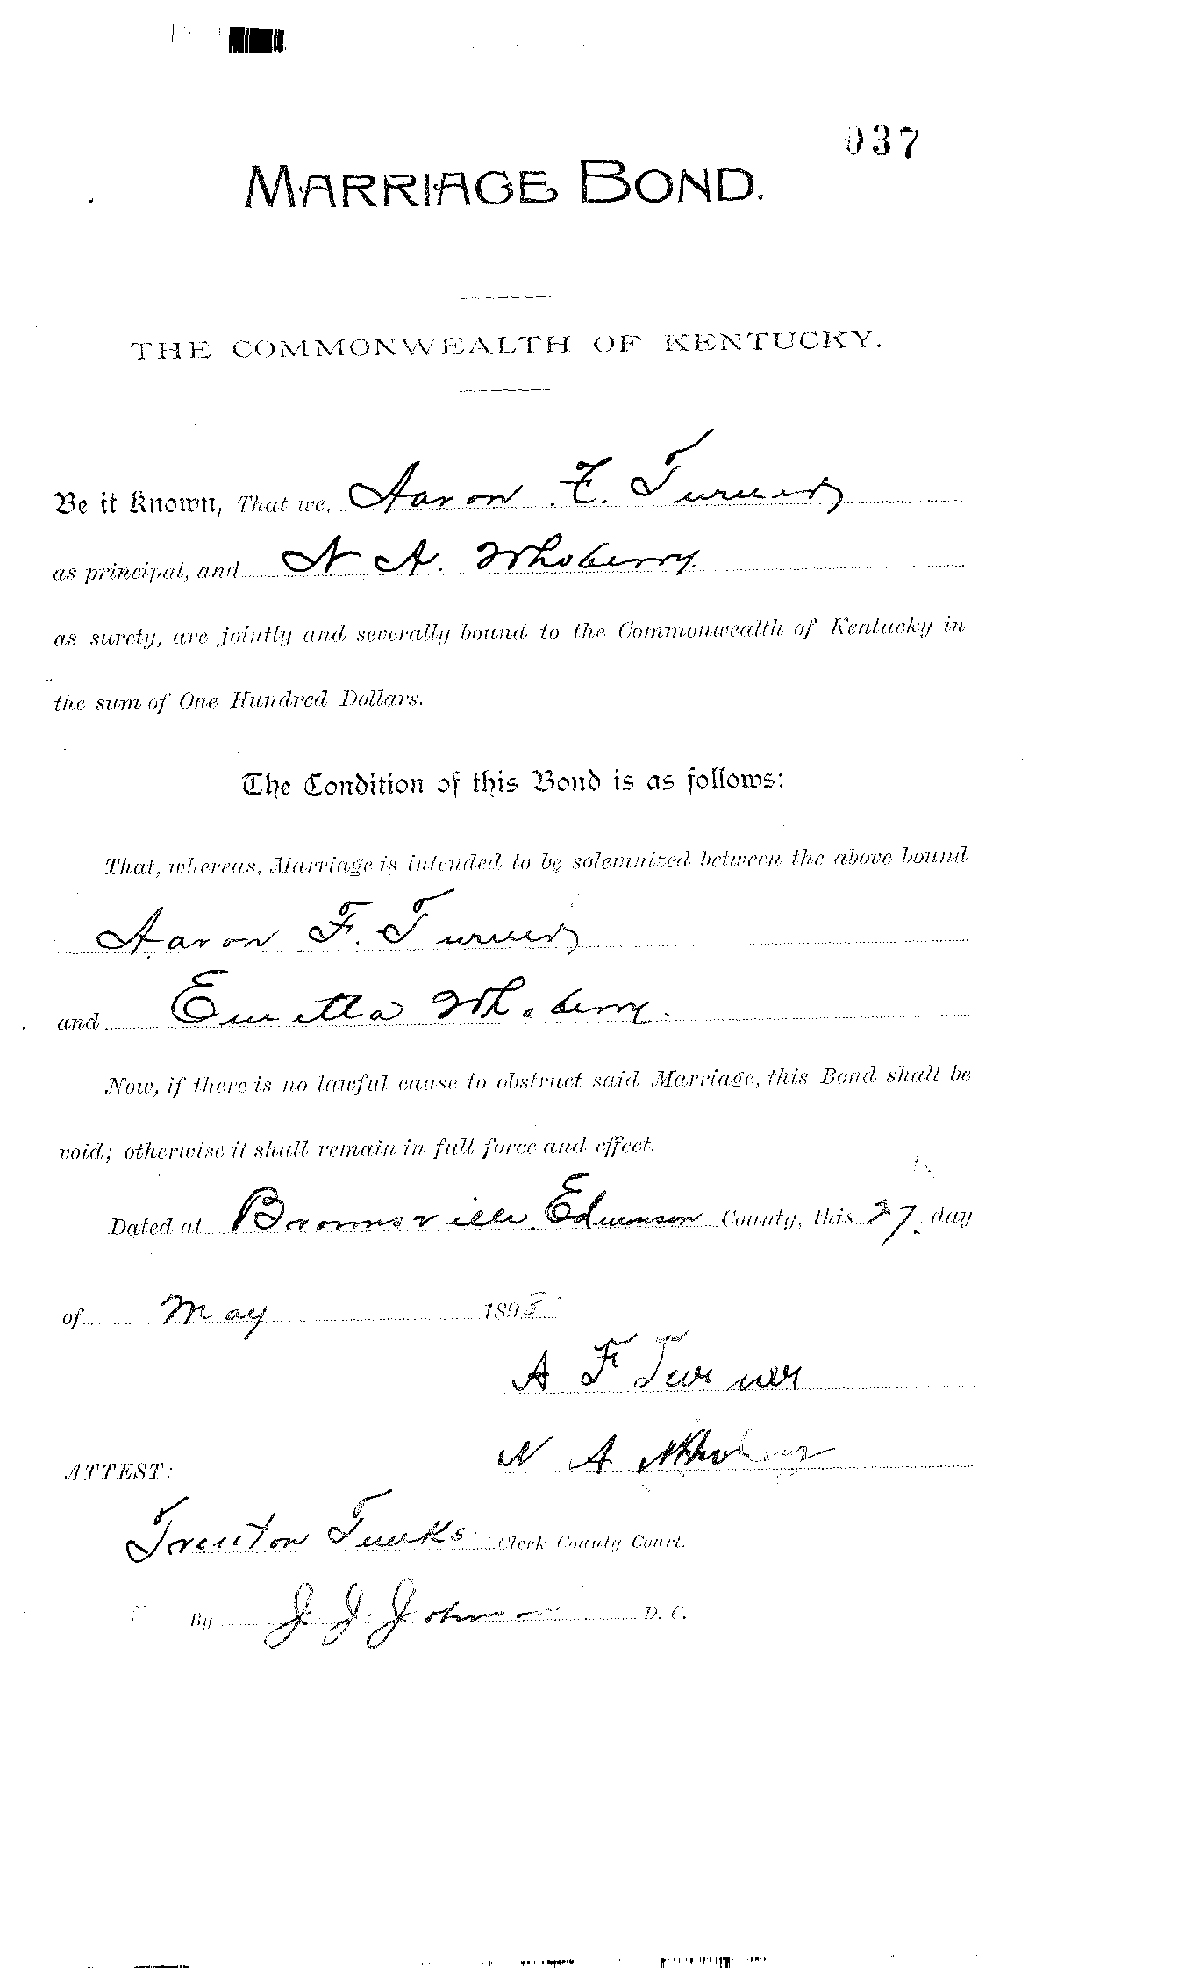 037
MARRIAGE BOND.
THE COMMONWEALTH OF KENTUCKY.
Be it Known, That we, Aaron F. Turner
as principal, and N A. Whoberry
as surety, are jointly and severally bound to the Commonwealth of Kentucky in
the sum of One Hundred Dollars.
The Condition of this Bond is as follows:
That, whereas, Marriage is intended to be solemnized between the above bound
Aaron F. Turner
and Emetta Whoberry.
Now, if there is no lawful cause to obstruct said Marriage, this Bond shall be
void; otherwise it shall remain in full force and effect.
Dated at Brownsville Edmonson County, this 27. day
of May 1895
A F Turner
N A Whoberry
ATTEST:
Treuton Tunks Clerk County Court.
By J. J. Johnson D. C.